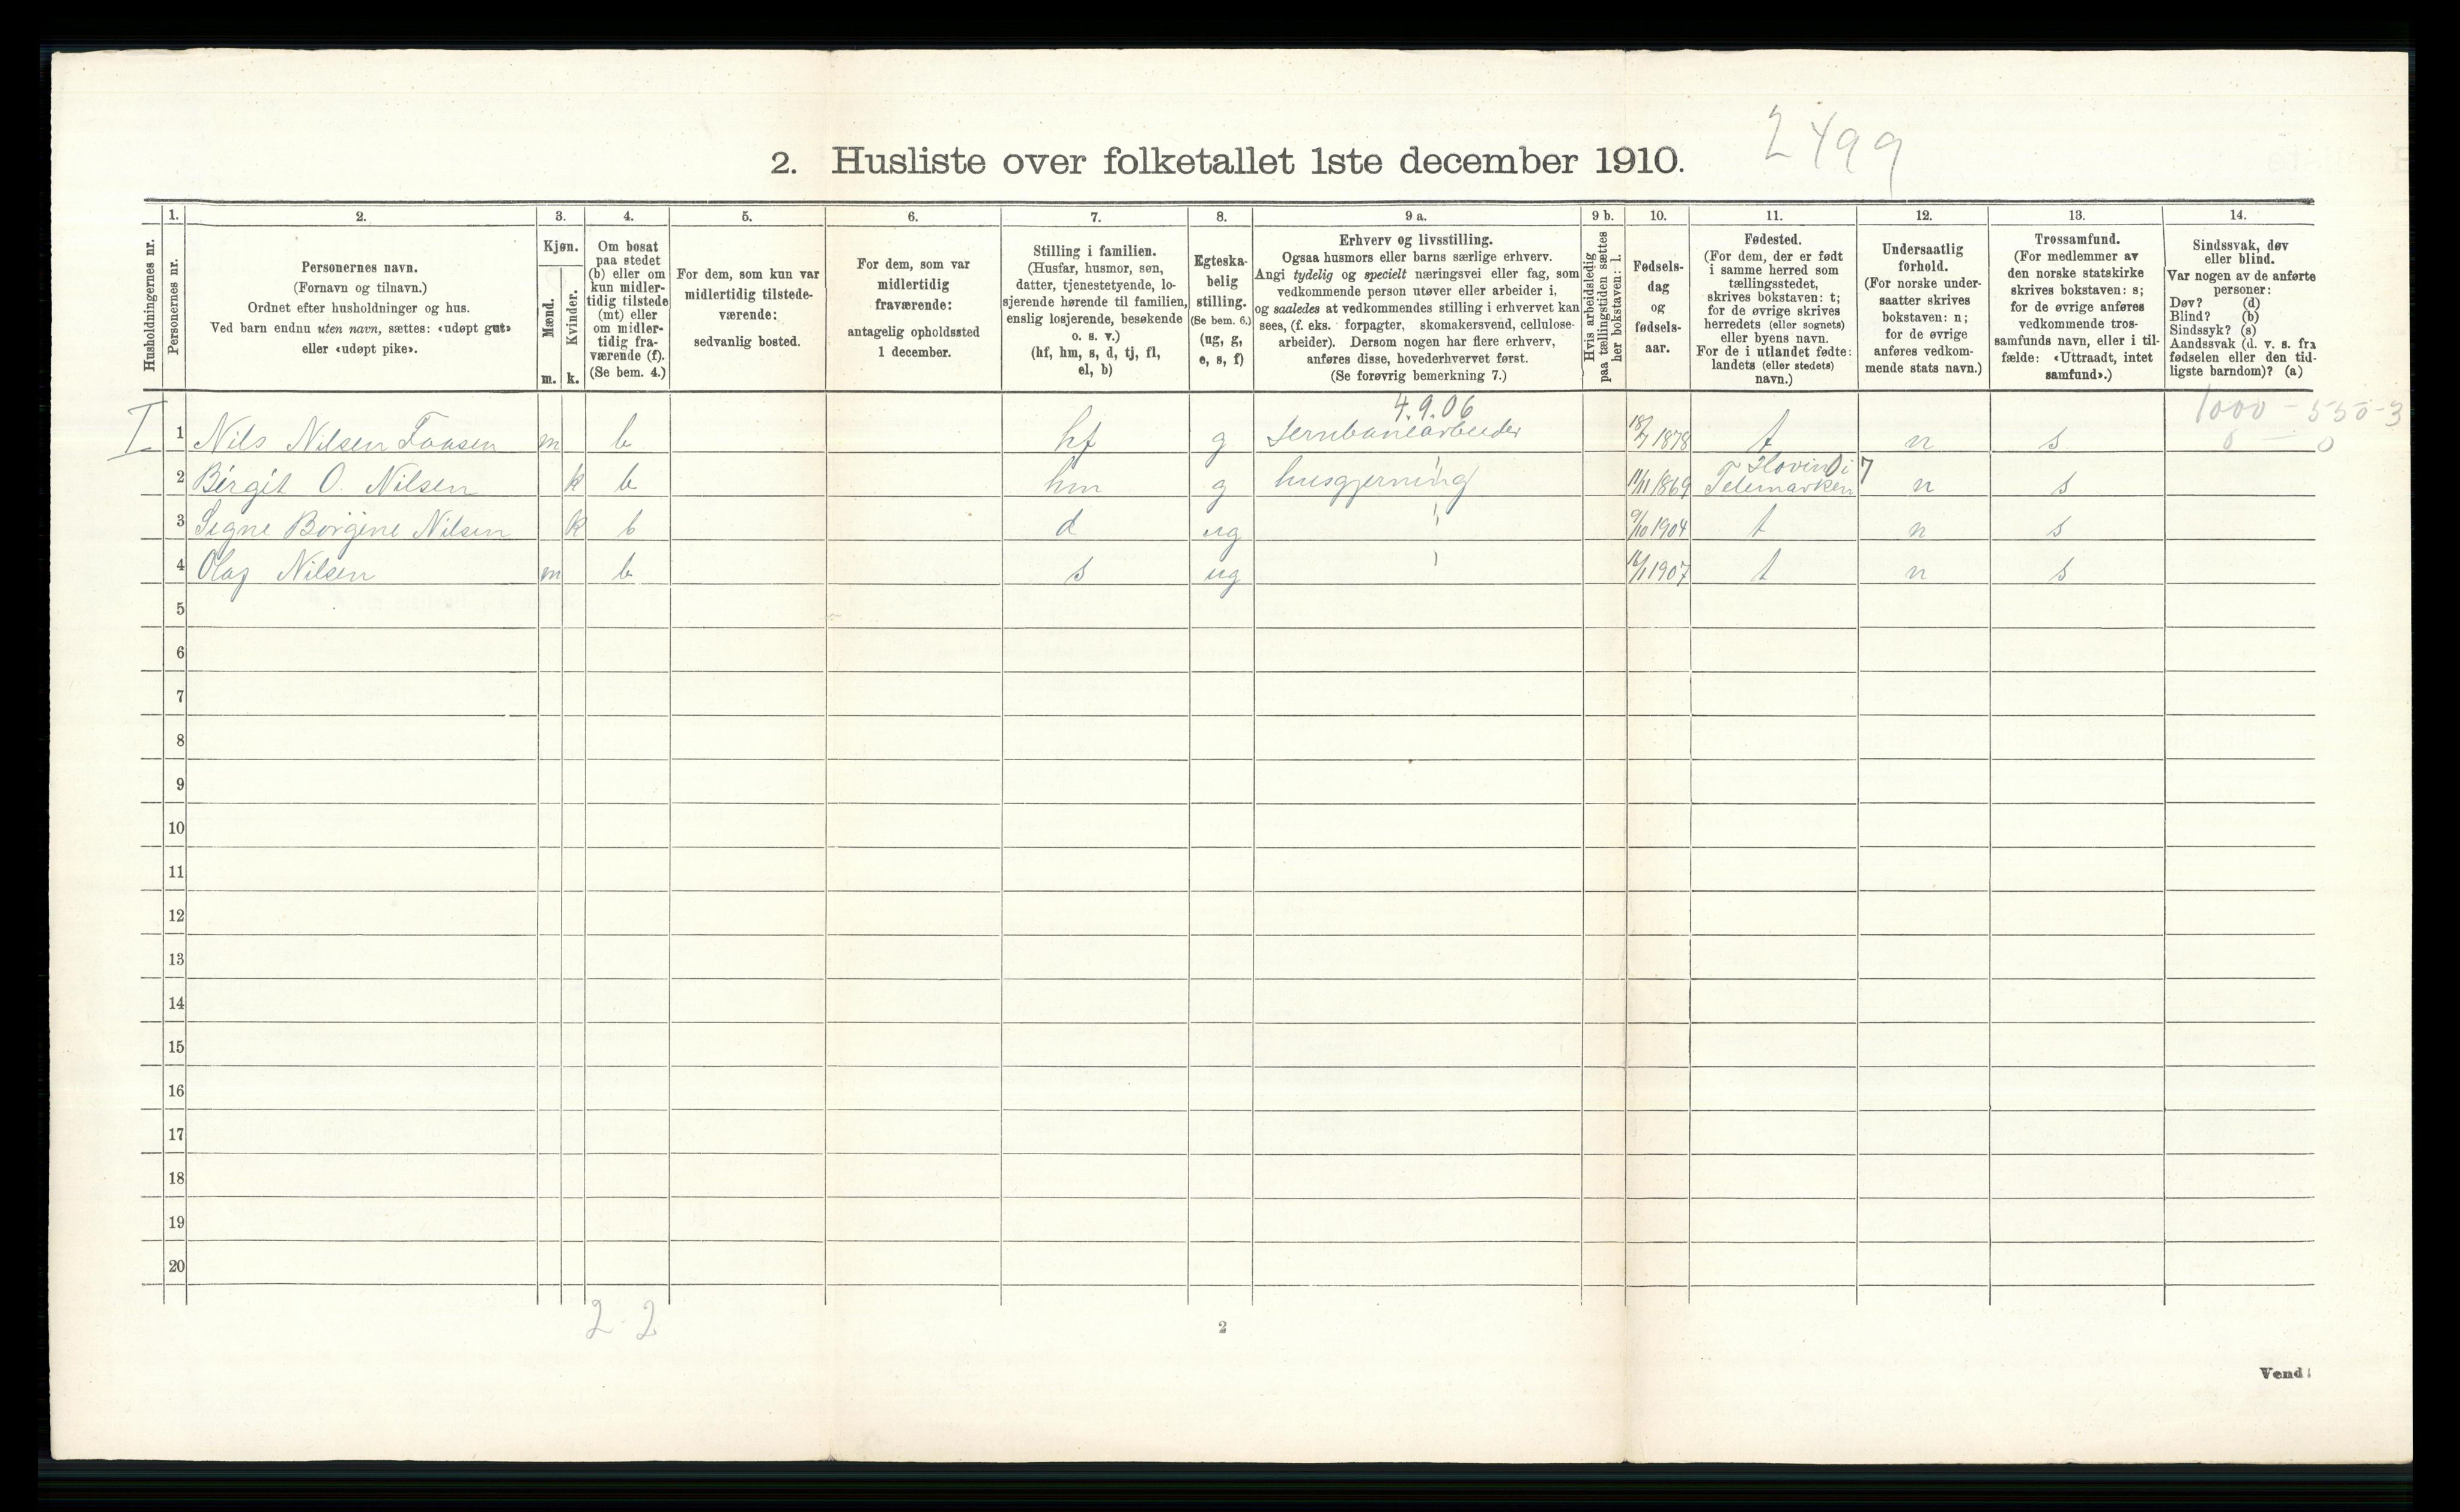 2499
2. Husliste over folketallet 1ste december 1910.
Husholdningernes nr.
1.
Personernes nr.
2.
Personernes navn.
(Fornavn og tilnavn.)
Ordnet efter husholdninger og hus.
Ved barn endnu uten navn, sættes: «udøpt gut»
eller «udøpt pike».
3.
Kjøn.
Mænd.
Kvinder.
m. k.
4.
Om bosat
paa stedet
(b) eller om
kun midler-
tidig tilstede
(mt) eller
om midler-
tidig fra-
værende (f).
(Se bem. 4.)
5.
For dem, som kun var
midlertidig tilstede-
værende:
sedvanlig bosted.
6.
For dem, som var
midlertidig
fraværende:
antagelig opholdssted
1 december.
7.
Stilling i familien.
(Husfar, husmor, søn,
datter, tjenestetyende, lo-
sjerende hørende til familien,
enslig losjerende, besøkende
o. s. v.)
(hf, hm, s, d, tj, fl,
el, b)
8.
Egteska-
belig
stilling.
(Se bem. 6.)
(ug, g,
e, s, f)
9 a.
Erhverv og livsstilling.
Ogsaa husmors eller barns særlige erhverv.
Angi tydelig og specielt næringsvei eller fag, som
vedkommende person utøver eller arbeider i,
og saaledes at vedkommendes stilling i erhvervet kan
sees, (f. eks. forpagter, skomakersvend, cellulose-
arbeider). Dersom nogen har flere erhverv,
anføres disse, hovederhvervet først.
(Se forøvrig bemerkning 7.)
9 b.
Hvis arbeidsledig
paa tællingstiden sættes
her bokstaven: l.
10.
Fødsels-
dag
og
fødsels-
aar.
11.
Fødested.
(For dem, der er født
i samme herred som
tællingsstedet,
skrives bokstaven: t;
for de øvrige skrives
herredets (eller sognets)
eller byens navn.
For de i utlandet fødte:
landets (eller stedets)
navn.)
12.
Undersaatlig
forhold.
(For norske under-
saatter skrives
bokstaven: n;
for de øvrige
anføres vedkom-
mende stats navn.)
13.
Trossamfund.
(For medlemmer av
den norske statskirke
skrives bokstaven: s;
for de øvrige anføres
vedkommende tros-
samfunds navn, eller i til-
fælde: «Uttraadt, intet
samfund».)
14.
Sindssvak, døv
eller blind.
Var nogen av de anførte
personer:
Døv? (d)
Blind? (b)
Sindssyk? (s)
Aandssvak (d. v. s. fra
fødselen eller den tid-
ligste barndom)? (a)
4.9.06 1000 - 550-3
I 1 Nils Nilsen Faasen m b hf g Jernbanearbeider 18/7 1878 t n s 0 - 0
Hovin i 7
2 Birgit O. Nilsen k b hm g husgjerning 11/11 1869 Telemarken n s
3 Signe Borgine Nilsen k b d ug 9/10 1904 t n s
4 Olaf Nilsen m b s ug 16/1 1907 t n s
5
6
7
8
9
10
11
12
13
14
15
16
17
18
19
20
2 2
2
Vend!